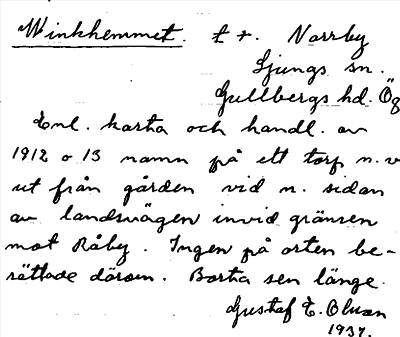 Winkhemmet. t +. Narrby
Ljungs sn.
Gullbergs hd. Ög
Enl. karta och handl. av
1912 o 13 namn på ett torp n.v
ut från gården vid n. sidan
av landsvägen invid gränsen
mot Råby. Ingen på orten be-
rättade därom. Borta sen länge.
Gustaf E. Olsson
1937.